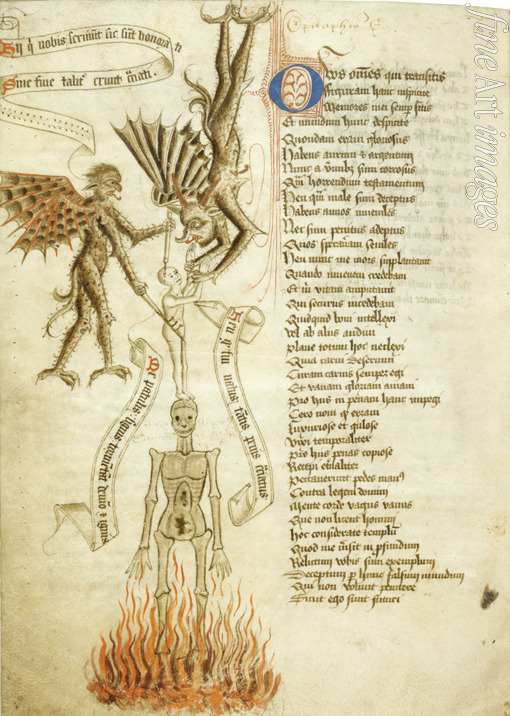 Hij q vobis serviunt sic sunt honorati
Sine fine taliter erunt cruciati
Epitaphia
Vos omnes qui transitis
Et figuram hanc inspicite
Memores mei semper sitis
Et mundum hunc despicite
Quondam eram gloriosus
Habens aurum et argentum
Nunc a vermibus sum corrosus
horrendum testamentum
Heu qm male sum deceptus
Habens annos iuveniles
Nec sum penitus adeptus
Quos speravam seniles
Heu nunc me mors supplantavit
Quando vivere credebam
Et vitam amputavit
Qui securus incedebam
Quidquid boni intellexi
Vel ab aliis audivi
Plane totum hoc neglexi
Quia carni deservivi
Curam carnis semper egi
Et vanam gloriam amavi
Pro hiis in penam hanc impegi
Cero novi q eram
Luxuriose et gulose
Vixi temporaliter
Pro hiis penas copiose
Recepi
Peccaverunt pedes manus
Contra legem domini
Mente corde vagus vanus
Que non licent homini
Hoc considerate
Quod me misit in profundum
Relictum vobis sum exemplum
Deceptum per hunc falsum mundum
Qui non volunt penitere
Sicut ego sunt
Heu q
fine Art images